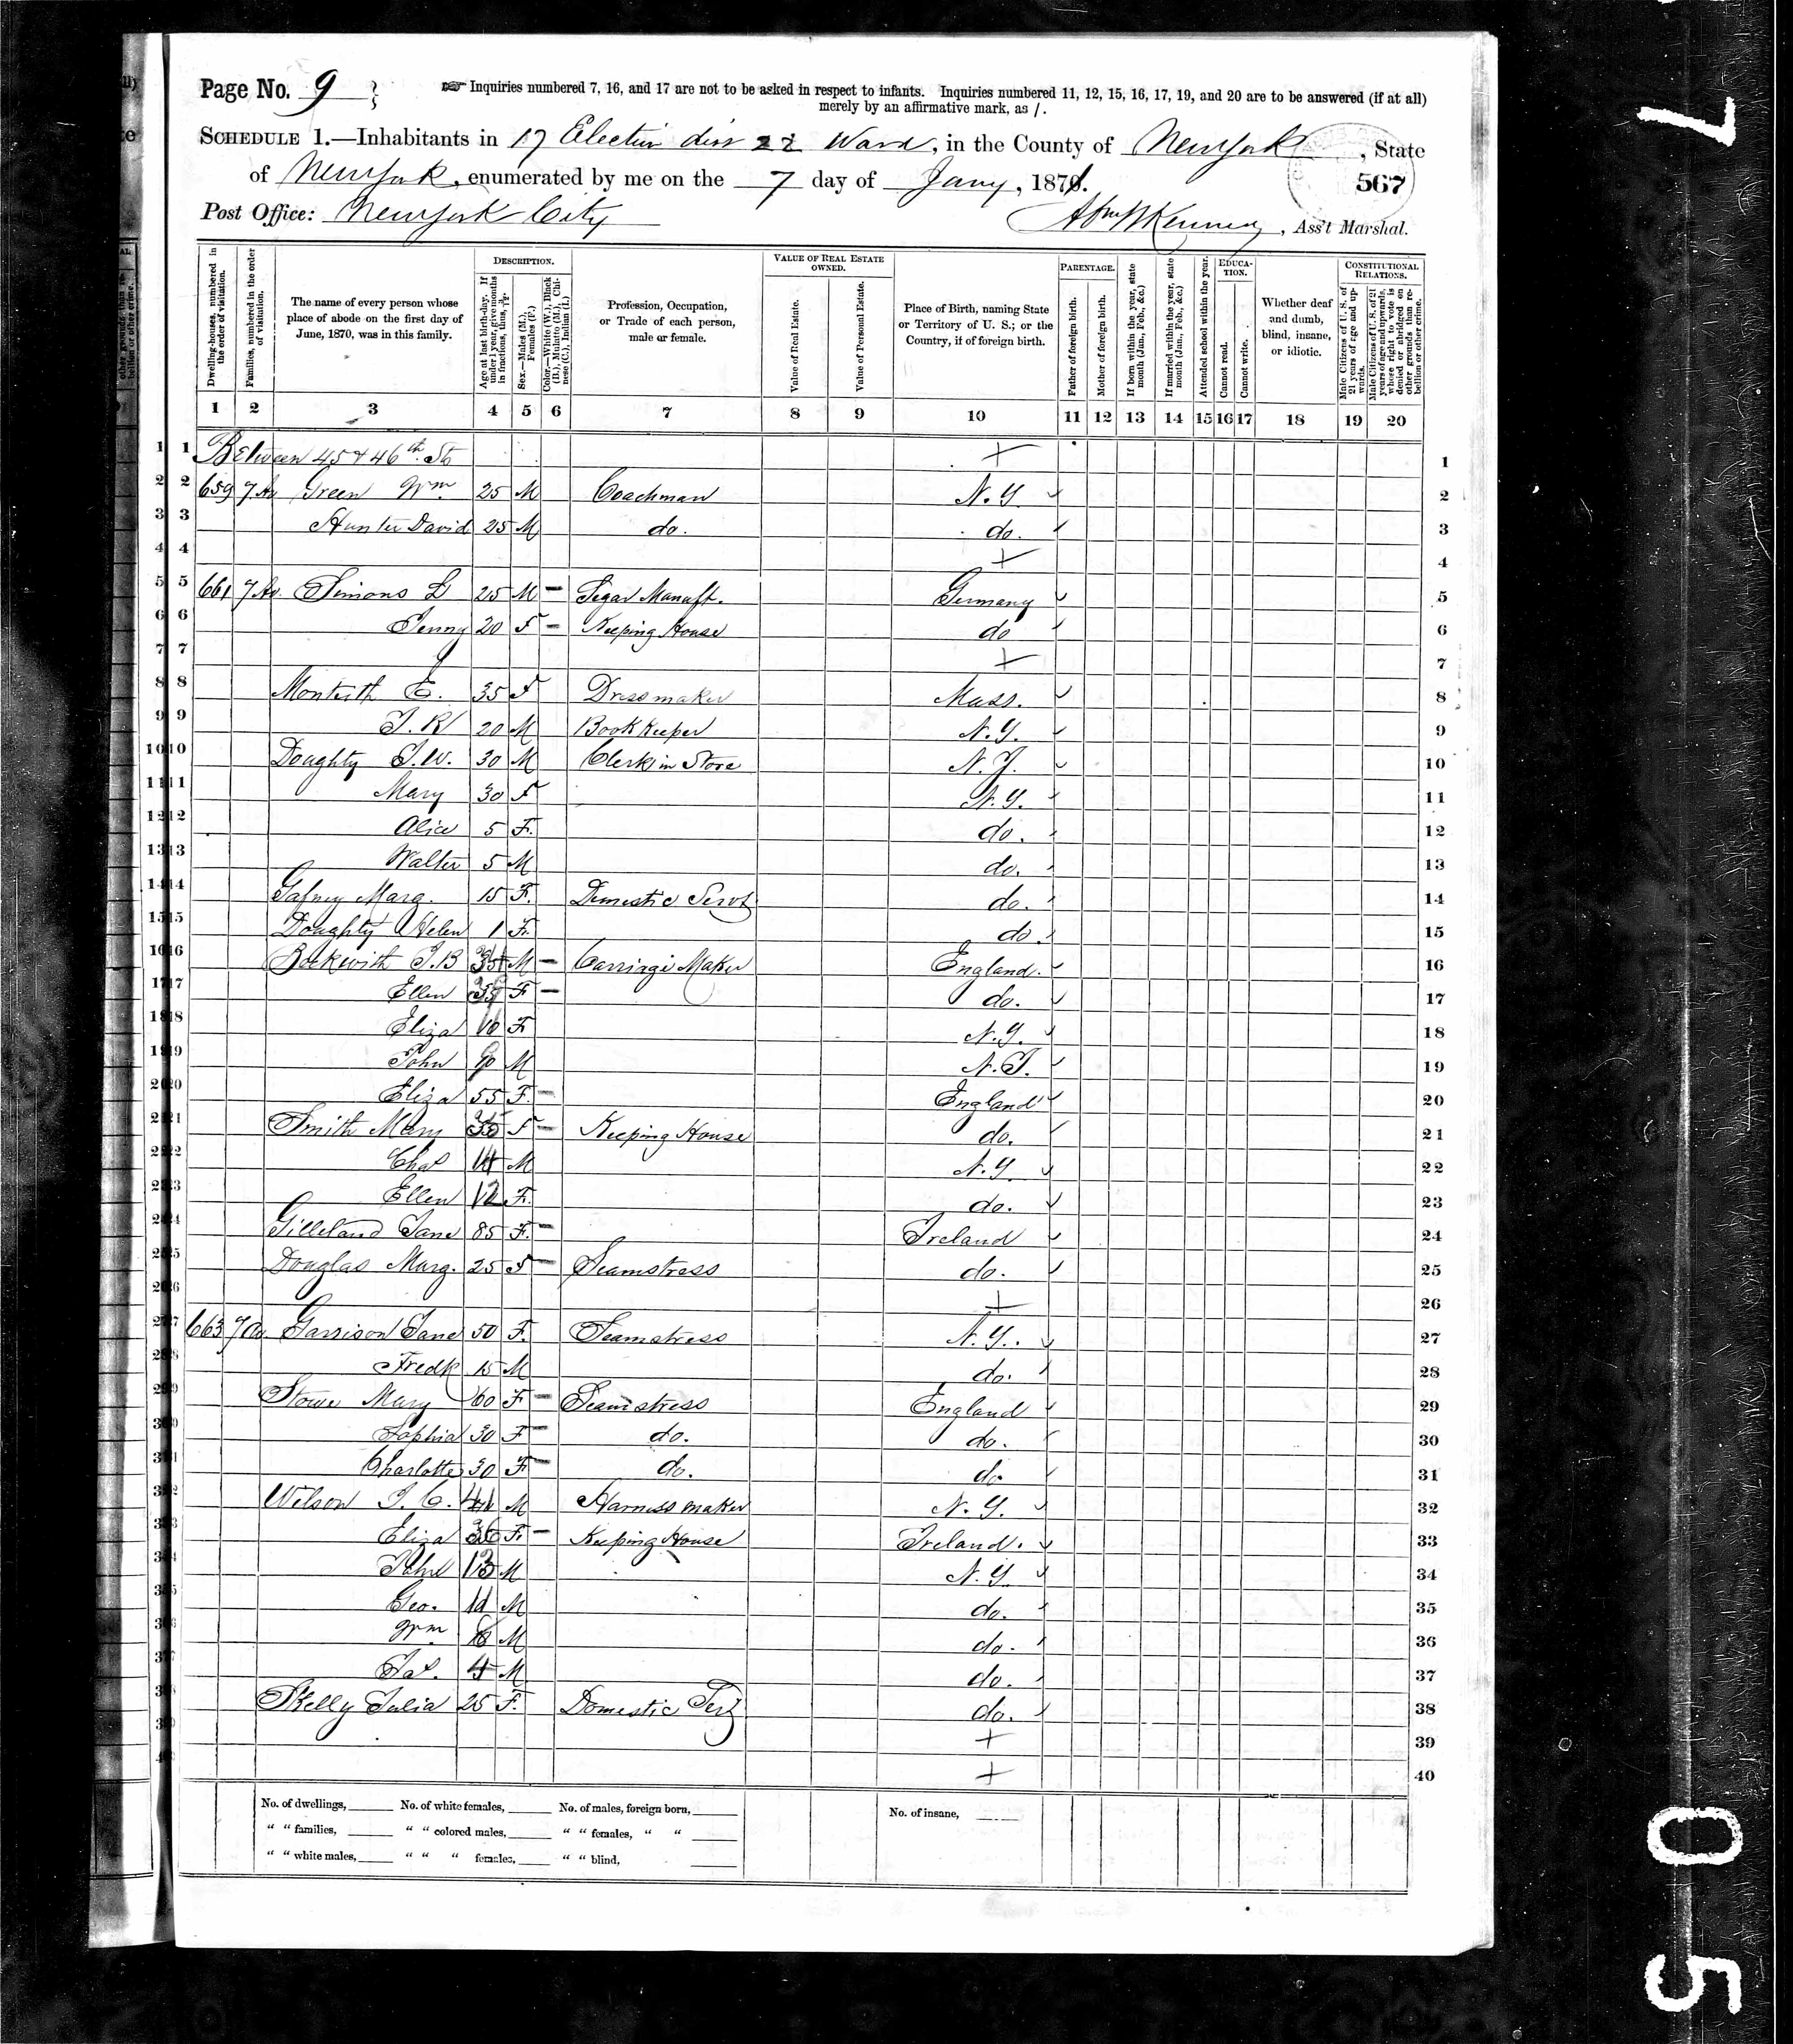 Page No. 9
Inquiries numbered 7, 16, and 17 are not to be asked in respect to infants. Inquiries numbered 11, 12, 15, 16, 17, 19, and 20 are to be answered (if at all)
merely by an affirmative mark, as /.
SCHEDULE 1.—Inhabitants in 17 Election diss 22 Ward, in the County of New York, State
of New York, enumerated by me on the 7 day of Jany, 1871.
567
Post Office: New York City
Kenney, Ass't Marshal.
Dwelling-houses, numbered in the order of visitation.
Families, numbered in the order of visitation.
The name of every person whose place of abode on the first day of June, 1870, was in this family.
DESCRIPTION.
Age at last birth-day. If under 1 year, give months in fractions, thus, 3/12.
Sex.—Males (M.), Females (F.)
Color.—White (W.), Black (B.), Mulatto (M.), Chinese (C.), Indian (I.)
Profession, Occupation, or Trade of each person, male or female.
VALUE OF REAL ESTATE OWNED.
Value of Real Estate.
Value of Personal Estate.
Place of Birth, naming State or Territory of U. S.; or the Country, if of foreign birth.
PARENTAGE.
Father of foreign birth.
Mother of foreign birth.
If born within the year, state month (Jan., Feb., &c.)
If married within the year, state month (Jan., Feb., &c.)
Attended school within the year.
EDUCATION.
Cannot read.
Cannot write.
Whether deaf and dumb, blind, insane, or idiotic.
CONSTITUTIONAL RELATIONS.
Male Citizens of U. S. of 21 years of age and upwards.
Male Citizens of U. S. of 21 years of age and upwards, whose right to vote is denied or abridged on other grounds than rebellion or other crime.
1 2 3 4 5 6 7 8 9 10 11 12 13 14 15 16 17 18 19 20
1 Between 45 & 46th Sts + 1
2 659 7 Av Green Wm 25 M Coachman N.Y. 2
3 Hunter David 25 M do. do. 3
4 + 4
5 661 7 Av. Simons L 25 M – Segar Manuft. Germany 5
6 Jenny 20 F – Keeping House do 6
7 + 7
8 Monteith E. 35 F Dress maker Mass. 8
9 J. R 20 M Book Keeper N.Y. 9
10 Doughty S.W. 30 M Clerk in Store N.J. 10
11 Mary 30 F N.Y. 11
12 Alice 5 F. do. 12
13 Walter 5 M do. 13
14 Gafney Marg. 15 F. Domestic Servt do. 14
15 Doughty Helen 1 F. do. 15
16 Beckwith J.B M – Carriage Maker England 16
17 Ellen F – do. 17
18 Eliza 10 F N.Y. 18
19 John M N.J. 19
20 Eliza 55 F. – England 20
21 Smith Mary F – Keeping House do. 21
22 Chas 14 M N.Y. 22
23 Ellen 12 F. do. 23
24 Gilleland Jane 85 F. – Ireland 24
25 Douglas Marg. 25 F – Seamstress do. 25
26 + 26
27 663 7 Av. Garrison Jane 50 F. Seamstress N.Y. 27
28 Fredk 15 M do. 28
29 Stowe Mary 60 F – Seamstress England 29
30 Sophia 30 F – do. do. 30
31 Charlotte 30 F – do. do 31
32 Wilson J. C. M Harness maker N.Y. 32
33 Eliza F. – Keeping House Ireland. 33
34 John 13 M N.Y. 34
35 Geo. 11 M do. 35
36 Wm M do. 36
37 Jas. 4 M do. 37
38 Kelly Julia 25 F. Domestic Sert do. 38
39 + 39
40 + 40
No. of dwellings, No. of white females, No. of males, foreign born, No. of insane,
" " families, " " colored males, " " females, " "
" " white males, " " " females, " " blind,
7
0
5